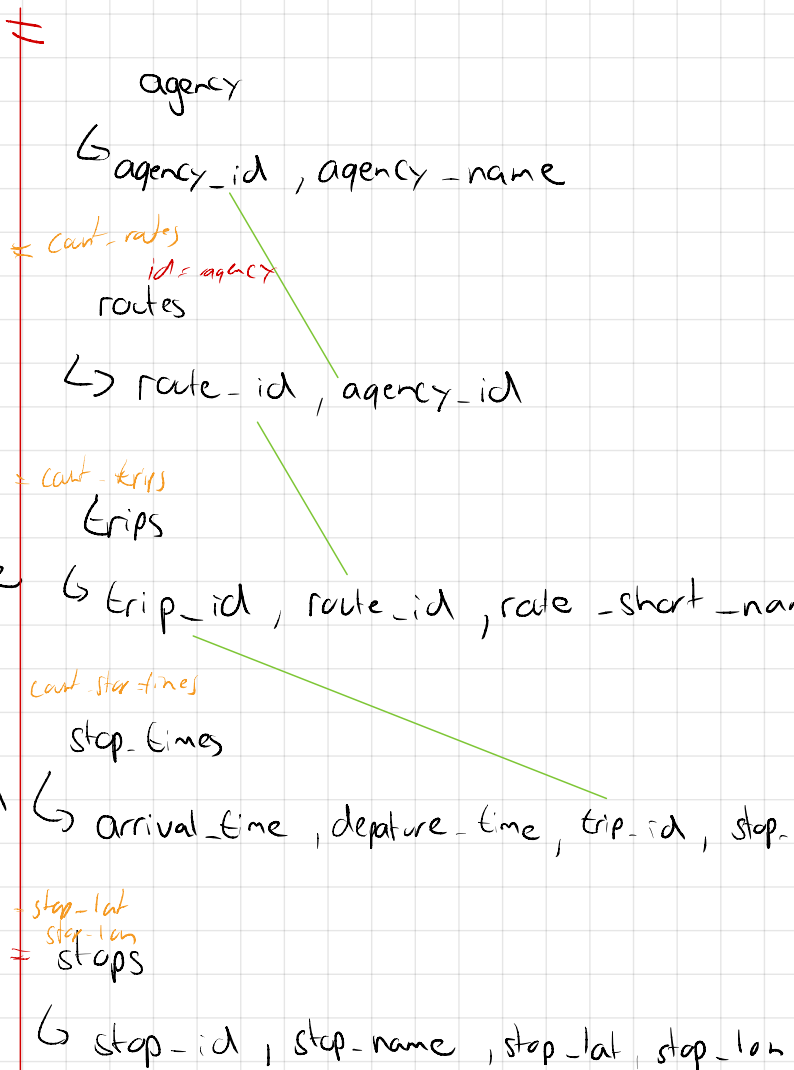 agency
agency_id , agency_name
count_routes
id = agency
routes
route_id , agency_id
count_trips
trips
trip_id , route_id , route_short_nam
count_stop_times
stop_times
arrival_time , depature_time , trip_id , stop_
stop_lat
stop_lon
stops
stop_id , stop_name , stop_lat , stop_lon